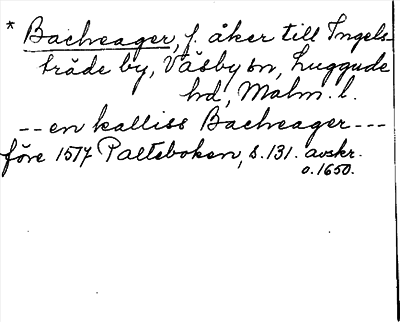 * Bacheager, f. åker till Ingels-
tråde by, Väsby sn, Luggude
hd, Malm. l.
-- en kalliss Bacheager ---
före 1577 Palteboken, s. 131. avskr.
o. 1650.